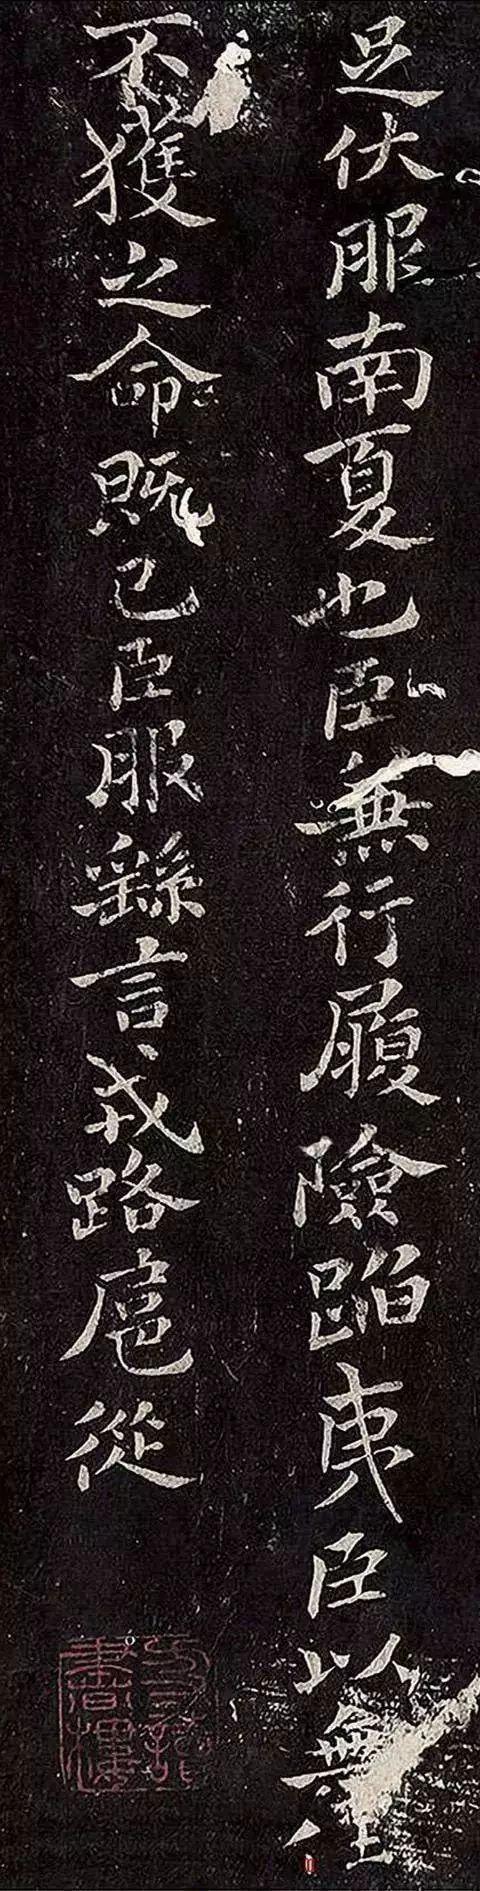 足伏服南夏也臣兼行履險蹈夷臣以無任
不獲之命既已臣服繇言戎路扈從